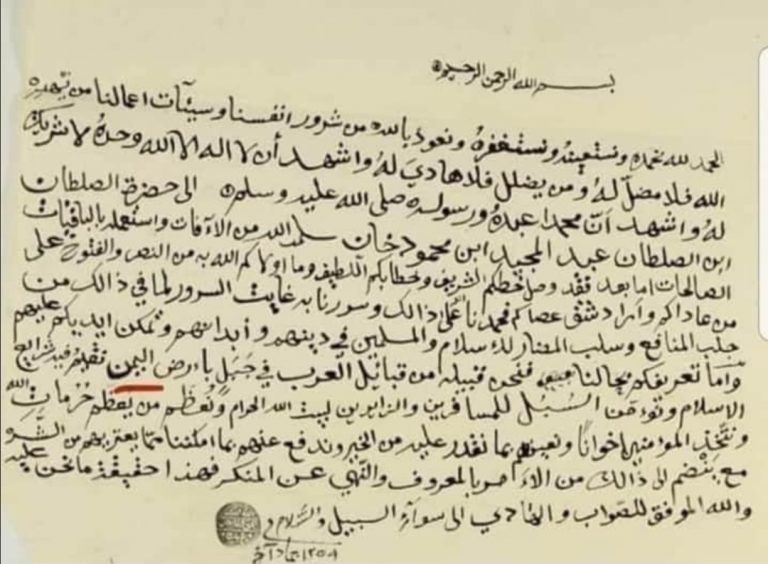 بسم الله الرحمن الرحيم
الحمد لله نحمده ونستعينه ونستغفره ونعوذ بالله من شرور انفسنا وسيئآت اعمالنا من يهده
الله فلا مضلّ لهُ ومن يضلل فلا هاديَ لهُ واشهد أن لا اله الا الله وحدهُ لا شريك
لهُ واشهد انّ محمدا عبدهُ ورسوله صلى الله عليه وسلم الى حضرة الصلطان
ابن الصلطان عبد المجيد ابن محمود خان سلمه الله من الآفات واستعمله بالباقيات
الصالحات اما بعد فقد وصل خطكم الشريف وخطابكم اللطيف وما اولاكم الله به من النصر والفتوح على
من عاداكم واراد شق عصاكم فحمدنا الله على ذالك وسورنا به غايت السرور لما في ذالك من
جلب المنافع وسلب المضار للاسلام والمسلمين في دينهم وأبدانهم وتمكن ايديكم عليهم
واما تعريفكم بحالنا فنحن قبيله من قبائل العرب في جبل بارض اليمن نقيم فيه شرايع
الاسلام ونؤمّن السُبُل للمسافرين والزايرين لبيت الله الحرام ونُعَظّم من يعظم حُرُماتِ الله
ونتّخذ المؤمنين اخوانًا ونعينهم بما نقدر عليه من الخير وندفع عنهم بما امكننا مما يعتريهم من الشر
مع ينضم الى ذالك من الأمر بالمعروف والنّهي عن المنكر فهذا حقيقة ما نحن عليه
والله الموفق للصّواب والهادي الى سوآء السبيل والسّلام
١٢٥٩ جماد آخر